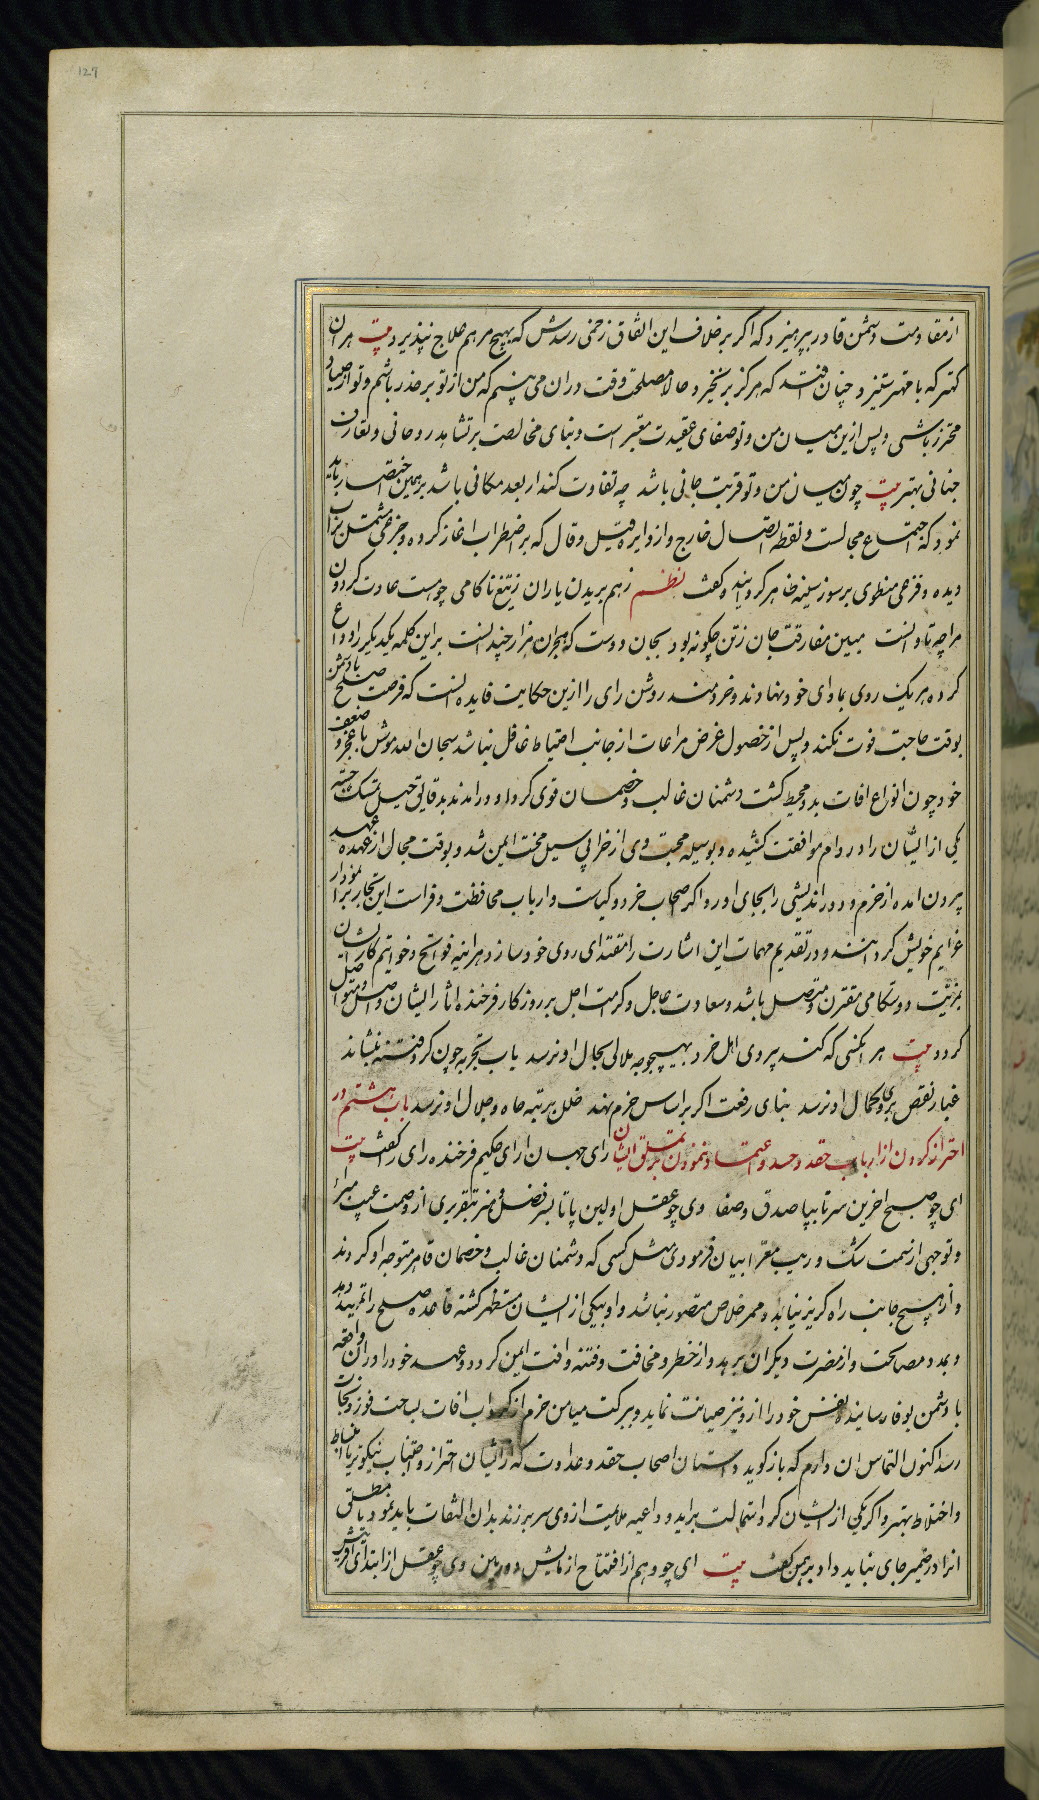 127
از مقاومت دشمن قادر بپرهیزد که اکر بر خلاف این اتفاق زخمی رسدش که بهیچ مرهم علاج نپذیرد بیت هر ان
کهتر که با مهتر ستیزد چنان افتد که هرکز بر نخیزد حالا مصلحت وقت دران می بینم که من از تو بر حذر باشم و تو از صیاد
محترز باشی و پس ازین میان من و تو صفای عقیدت معتبر است و بنای مخالصت بر تشاهد روحانی و تعارف
جنانی بهتر بیت چون میان من و تو قربت جانی باشد چه تفاوت کند ار بعد مکانی باشد برهمین اختصار باید
نمود که اجتماع مجالست و نقطه اتصال خارج و از دایره قیل و قال که بر اضطراب اغاز کرده و جزعی مشتمل بر اب
دیده و فزعی منطوی بر سوز سینه ظاهر کردانید و کفت نظم زهم بریدن یاران ز تیغ ناکامی چوهست عادت کردون
مراچه تاوانست ببین مفارقت جان ز تن چکونه بود بجان دوست که هجران هزار چندانست براین کلمه یکدیکر را وداع
کرده هر یک روی بماوای خود نهادند و خردمند روشن رای را ازین حکایت فایده انست که فرصت صلح با دشمن
بوقت حاجت فوت نکند و پس از حصول غرض مراعات از جانب احتیاط غافل نباشد سبحان الله موش با عجز و ضعف
خود چون انواع افات بدو محیط کشت دشمنان غالب و خصمان قوی کرد او درامدند بدقایق حیل تمسک جسته
یکی از ایشان را در دام موافقت کشیده و بوسیله محبت وی از خرابی سیل محنت ایمن شد و بوقت مجال از عهده عهد
بیرون امده از حزم و دوراندیشی را بجای اورد اکر اصحاب خرد و کیاست و ارباب محافظت و فراست این تجارب را نمودار
عزایم خویش کردانند و در تقدیم مهمات این اشارت را مقتدای روی خود سازد هراینه فواتح و خواتیم کارشان
بمزیت دوستکامی مقترن و متصل باشد و سعادت عاجل و کرامت اجل بر روزکار فرخنده اثار ایشان واصل و متواصل
کردد بیت هر انکسی که کند پیروی اهل خرد بهیچوجه ملالی بحال او نرسد باب تجربه چون کرد فتنه بنشاند
غبار نقص بروی کمال او نرسد بنای رفعت اکر بر اساس حزم نهد خلل برتبه جاه و جلال او نرسد باب هشتم در
احتراز کردن از ارباب حقد و حسد و اعتماد نمودن بر تملق ایشان رای جهان ارای حکیم فرخنده رای را کفت بیت
ای چو صبح اخرین سر تا بپا صدق و صفا وی چو عقل اولین پا تا بسر فضل و هنر بتقریری از وصمت عیب مبرا
و توجهی از سمت شک و ریب معرا بیان فرمودی مثل کسی که دشمنان غالب و خصمان قاهر متوجه او کردند
و از هیچ جانب راه کریز نیابد و ممر خلاص متصور نباشد و او بیکی از ایشان مستظهر کشته قاعده صلح را تمهید دهد
و بمدد مصالحت وی از مضرت دیکران برهد و از خطر و مخافت و فتنه و افت ایمن کردد و عهد خود را دران واقعه
با دشمن بوفا رسانیده نفس خود را از و نیز صیانت نماید و ببرکت میامن حزم از کرداب افات بساحت فوز و نجات
رسد اکنون التماس ان دارم که باز کوید داستان اصحاب حقد و عداوت که از ایشان احتراز و اجتناب نیکوتر یا انبساط
و اختلاط بهتر و اکر یکی از ایشان کرد استمالت براید و داعیه ملایمت از وی سر برزند بدان التفات باید نمود یا مطلق
انرا در ضمیر جای نباید داد برهمن کفت بیت ای چو وهم از افتتاح ازمایش دوربین وی چو عقل از ابتدای افرینش